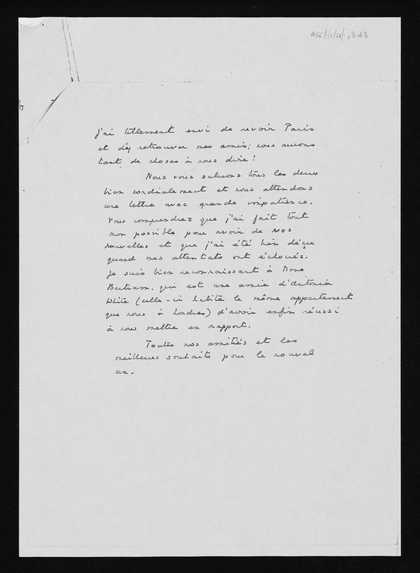 j'ai tellement envi de revoir Paris
et d'y retrouver nos amis; nous aurons
tant de choses à vous dire!
Nous vous saluons tous les deux
bien cordialement et vous attendons
une lettre avec grande impatience.
Vous comprendrez que j'ai fait tout
mon possible pour avoir de vos
nouvelles et que j'ai été bien déçue
quand mes attentats ont échoués.
Je suis bien reconnaissant à
qui est une amie d'Antonia
White (celle-ci habite le même appartement
que nous à Londres) d'avoir enfin réussi
à nous mettre en rapport.
Toutes nos amitiés et les
meilleurs souhaits pour le nouvel
an.